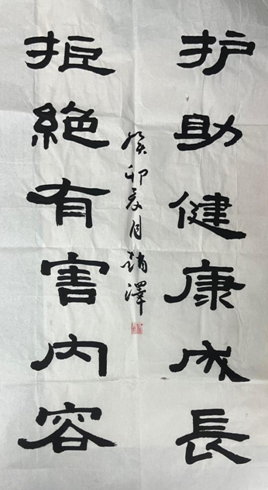 护助健康成長
拒絕有害内容
癸卯夏月靖澤